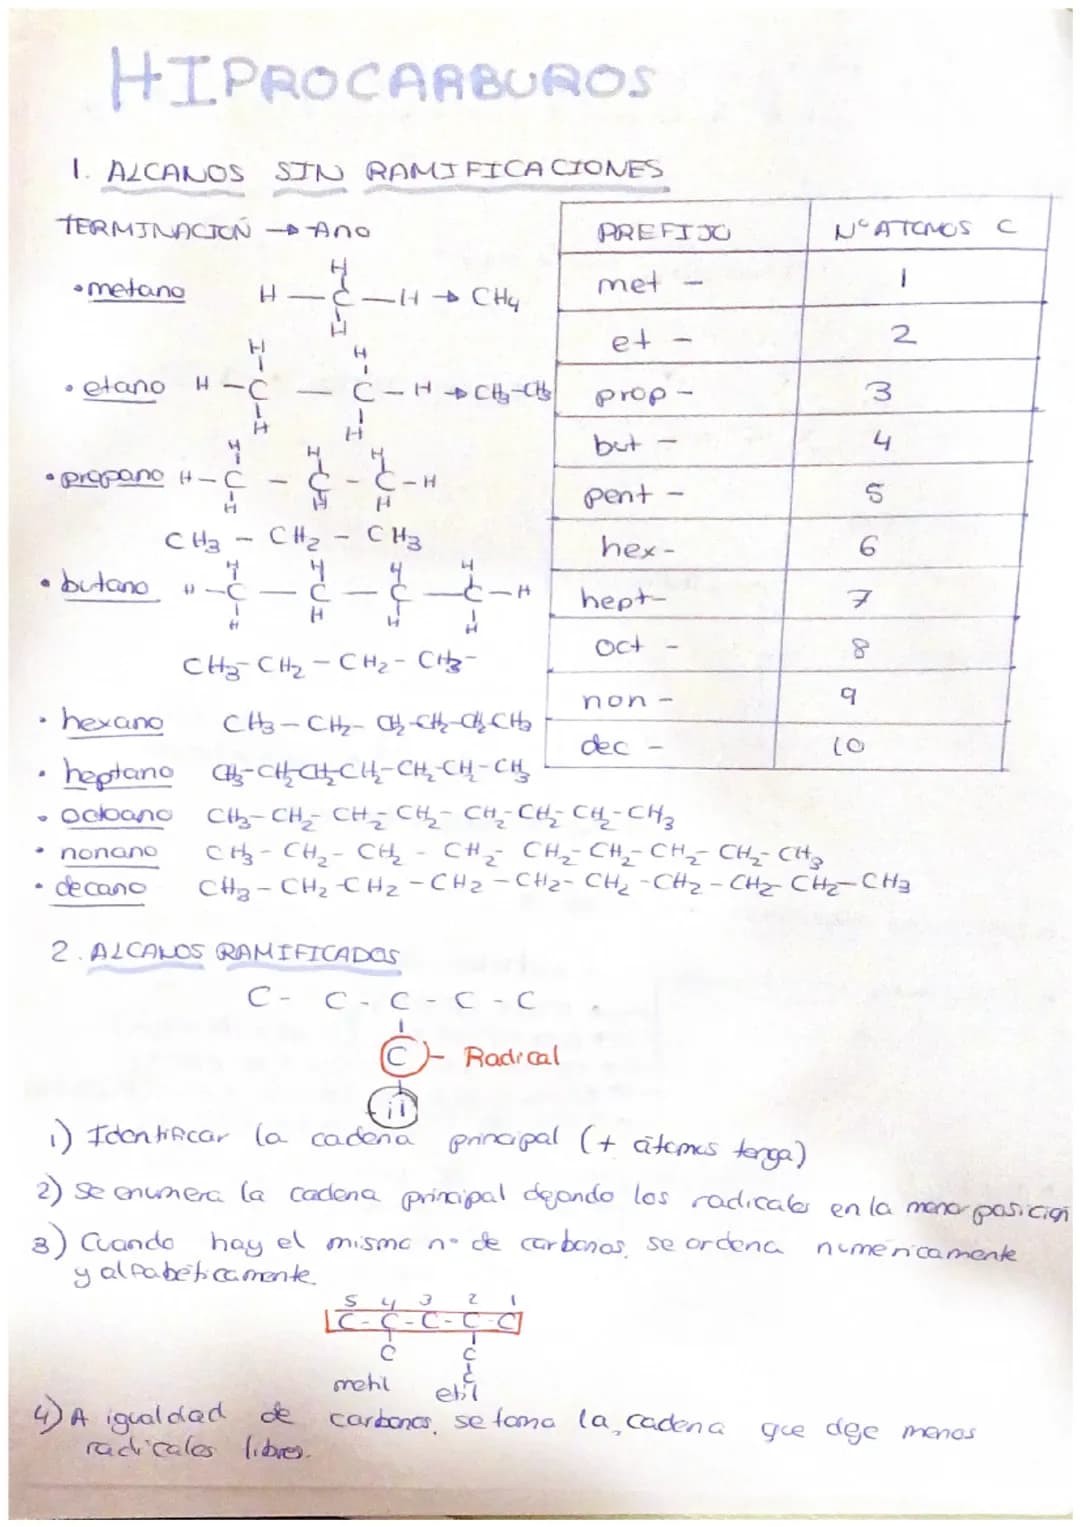 HIPROCARBUROS
1. ALCANOS SIN RAMIFICACIONES
TERMINACIÓN → Ano
PREFIJO N° ATOMOS C
met - 1
et - 2
prop - 3
but - 4
pent - 5
hex - 6
hept- 7
oct - 8
non - 9
dec - 10
• metano
H
H — C — H → CH4
H
• etano
H H
H — C — C — H → CH3-CH3
H H
• propano
H H H
H — C — C — C — H
H H H
CH3 - CH2 - CH3
• butano
H H H H
H — C — C — C — C — H
H H H H
CH3- CH2 - CH2 - CH3-
• hexano CH3 - CH2 - CH2-CH2-CH2-CH3
• heptano CH3-CH2-CH2-CH2-CH2-CH2-CH3
• octoano CH3-CH2-CH2-CH2-CH2-CH2-CH2-CH3
• nonano CH3-CH2-CH2-CH2-CH2-CH2-CH2-CH2-CH3
• decano CH3-CH2-CH2-CH2-CH2-CH2-CH2-CH2-CH2-CH3
2. ALCANOS RAMIFICADOS
C - C - C - C - C
C - Radical
1) Identificar la cadena principal (+ átomos tenga)
2) Se enumera la cadena principal dejando los radicales en la menor posición
3) Cuando hay el mismo nº de carbonos, se ordena numéricamente
y alfabéticamente.
5 4 3 2 1
C - C - C - C - C
C C
C
metil etil
4) A igualdad de carbonos, se toma la cadena que deje menos
radicales libres.